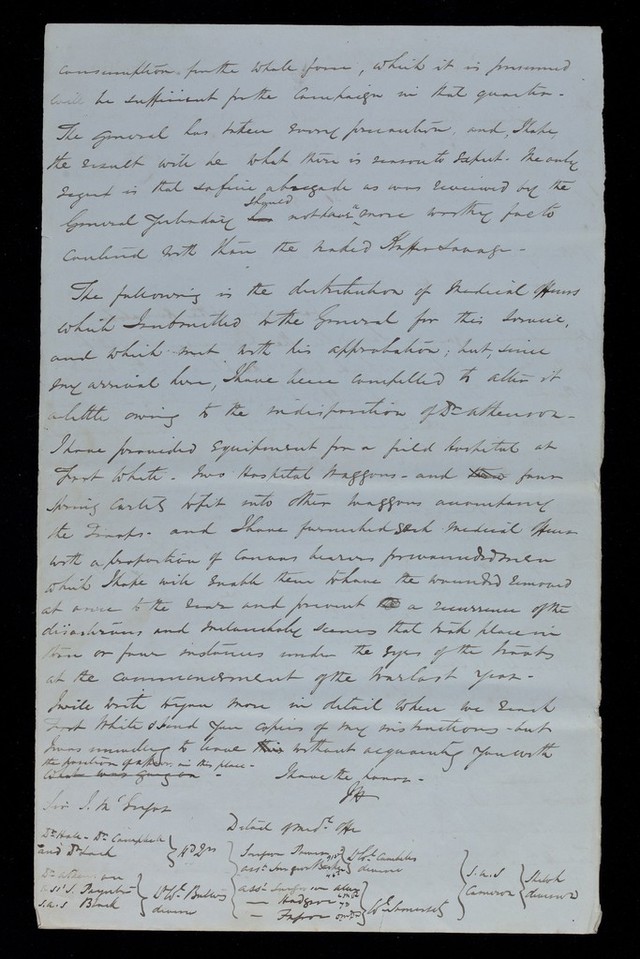 consumption for the whole force, which it is presumed
will be sufficient for the Campaign in that quarter -
The General has taken every precaution, and, I hope,
the result will be what there is reason to expect. The only
regret is that so fine a brigade as was reviewed by the
General yesterday should not have more worthy foe to
contend with than the naked Kaffer Savage -
The following is the distribution of Medical Officers
which I submitted to the General for this service,
and which met with his approbation; but, since
my arrival here, I have been compelled to alter it
a little owing to the indisposition of Dr Atkinson -
I have provided Equipment for a field Hospital at
Fort White. Two Hospital Waggons - and four
Spring Carts to fit into other waggons accompany
the Troops - and I have furnished each Medical Officer
with a proportion of Canvas bearers for wounded men
which I hope will enable them to have the wounded removed
at once to the rear and prevent a recurrence of the
disastrous and melancholy scenes that took place in
three or four instances under the eyes of the Troops
at the commencement of the War last year -
I will write to you more in detail when we reach
Fort White & send you copies of my instructions - but
I was unwilling to leave this without acquainting you with
the position of affairs in this place -
I have the honor -
JH
Sir J. McGrigor
Detail of Medl Offr
Dr Hall - Dr Campbell
and Dr
Hd Qrs
Surgeon
Asst Surgeon
Lt Col Campbell's
division
Asst Surgeon
Hodgson
Fraser
Col Somerset's
S.A.S
Cameron
division
Dr Atkinson
Asst S.
S.A.S Black
Lt Col Buller's
division